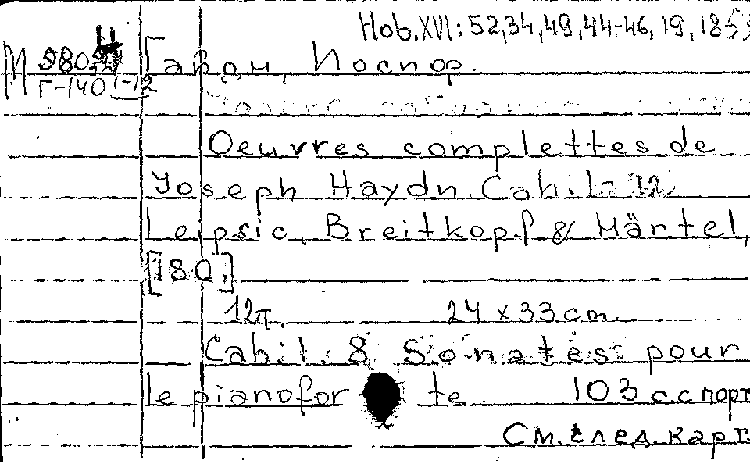 Hob.XVI: 52,34,49,44-46,19,18
М 980
Г-140 1-12
Гайдн, Иосиф.
Oeuvres complettes de
Joseph Haydn. Cah.1-12
Leipsic, Breitkopf & Härtel,
[180.]
12п. 24 x 33 cm.
Cah.1. 8 Sonates pour
le pianoforte 103 с спорт
См. след. карт